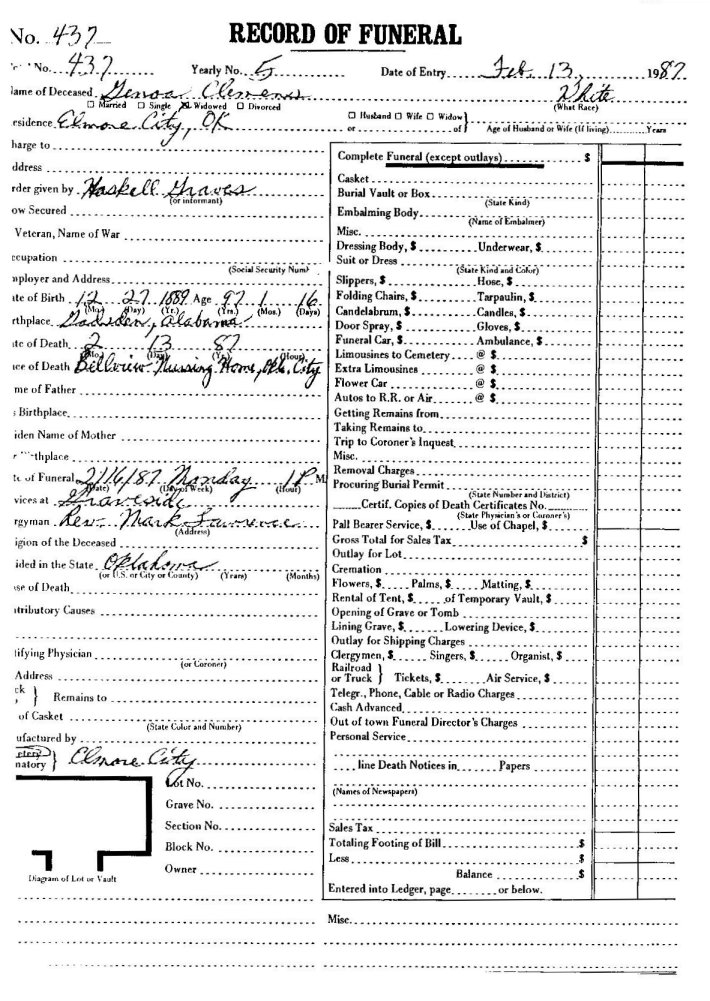 No. 437 RECORD OF FUNERAL
No. 437 Yearly No. 5 Date of Entry Feb. 13, 1987
lame of Deceased Genoa Clemens White
☐ Married ☐ Single ☒ Widowed ☐ Divorced (What Race)
esidence Elmore City, OK ☐ Husband ☐ Wife ☐ Widow} or of} Age of Husband or Wife (If living) Years
harge to
ddress Complete Funeral (except outlays) $
rder given by Haskell Graves Casket
(or informant) Burial Vault or Box
(State Kind)
ow Secured Embalming Body
(Name of Embalmer)
Veteran, Name of War Misc.
Dressing Body, $ Underwear, $
ccupation Suit or Dress
(Social Security Num (State Kind and Color)
mployer and Address Slippers, $ Hose, $
ate of Birth 12 27 1889 Age 97 1 16 Folding Chairs, $ Tarpaulin, $
(Mo.) (Day) (Yr.) (Yrs.) (Mos.) (Days) Candelabrum, $ Candles, $
rthplace Gadsden, Alabama Door Spray, $ Gloves, $
te of Death 2 13 87 Funeral Car, $ Ambulance, $
(Mo.) (Day) (Yr.) (Hour) Limousines to Cemetery @ $
ace of Death Bellview Nursing Home, Ok. City Extra Limousines @ $
Flower Car @ $
me of Father Autos to R.R. or Air @ $
s Birthplace Getting Remains from
Taking Remains to
iden Name of Mother Trip to Coroner's Inquest
thplace Misc.
Removal Charges
te of Funeral 2/16/87 Monday 1 P M Procuring Burial Permit
(Date) (Day of Week) (Hour) (State Number and District)
vices at Graveside Certif. Copies of Death Certificates No.
(State Physician's or Coroner's)
rgyman Rev. Mark Lawrence Pall Bearer Service, $ Use of Chapel, $
(Address)
igion of the Deceased Gross Total for Sales Tax $
Outlay for Lot
ided in the State Oklahoma Cremation
(or U.S. or City or County) (Years) (Months)
se of Death Flowers, $ Palms, $ Matting, $
Rental of Tent, $ of Temporary Vault, $
tributory Causes Opening of Grave or Tomb
Lining Grave, $ Lowering Device, $
Outlay for Shipping Charges
tifying Physician Clergymen, $ Singers, $ Organist, $
(or Coroner) Railroad
Address or Truck } Tickets, $ Air Service, $
ck } Remains to Telegr., Phone, Cable or Radio Charges
Cash Advanced
of Casket Out of town Funeral Director's Charges
(State Color and Number)
ufactured by Personal Service
etery
natory } Elmore City line Death Notices in Papers
Lot No.
(Names of Newspapers)
Grave No.
Section No. Sales Tax
Block No. Totaling Footing of Bill $
Less $
Owner Balance $
Diagram of Lot or Vault Entered into Ledger, page or below.
Misc.